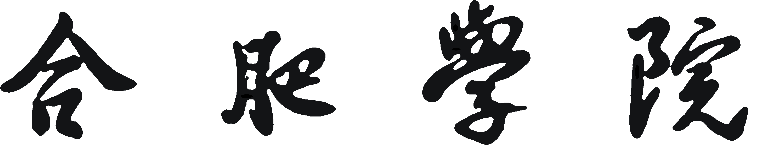 合肥學院